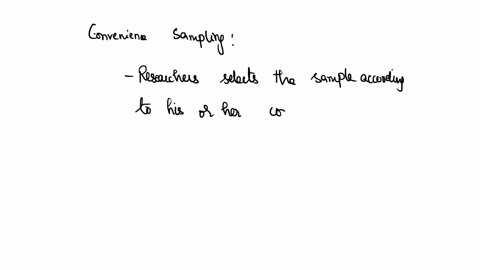 Convenience Sampling:
- Researchers selects the sample according
to his or her co